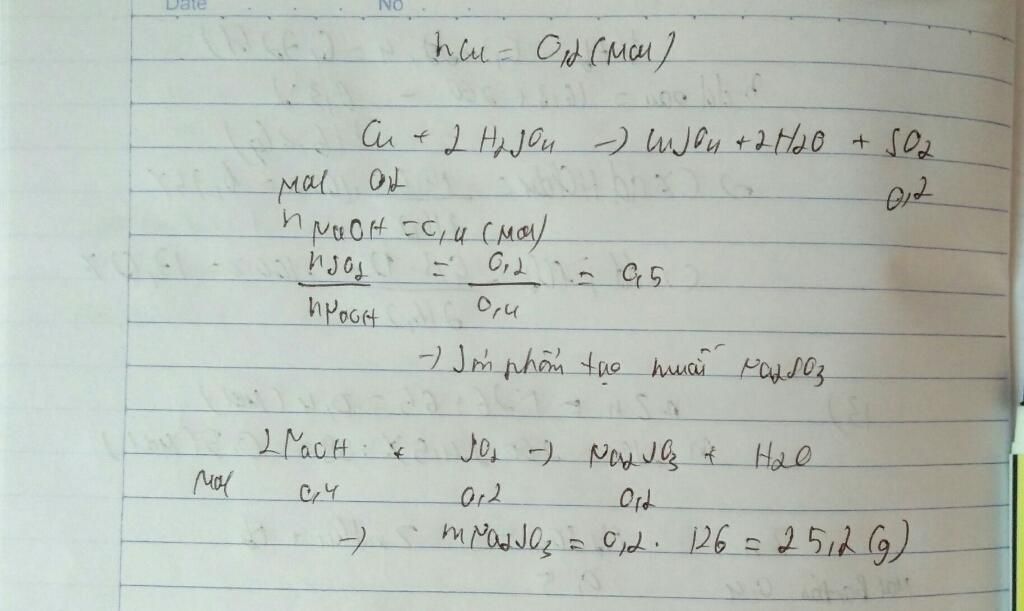 Date No
nCu = 0,2 (mol)
Cu + 2 H2SO4 → CuSO4 + 2H2O + SO2
mol 0,2 0,2
nNaOH = 0,4 (mol)
nSO2 / nNaOH = 0,2 / 0,4 = 0,5
→ Sản phẩm tạo muối Na2SO3
2NaOH + SO2 → Na2SO3 + H2O
mol 0,4 0,2 0,2
→ mNa2SO3 = 0,2 . 126 = 25,2 (g)